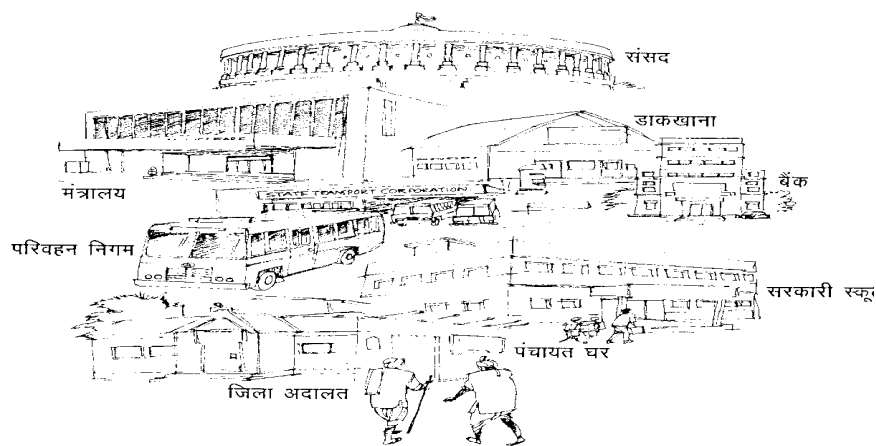 संसद
डाकखाना
मंत्रालय
बैंक
STATE TRANSPORT CORPORATION
परिवहन निगम
सरकारी स्कूल
पंचायत घर
जिला अदालत